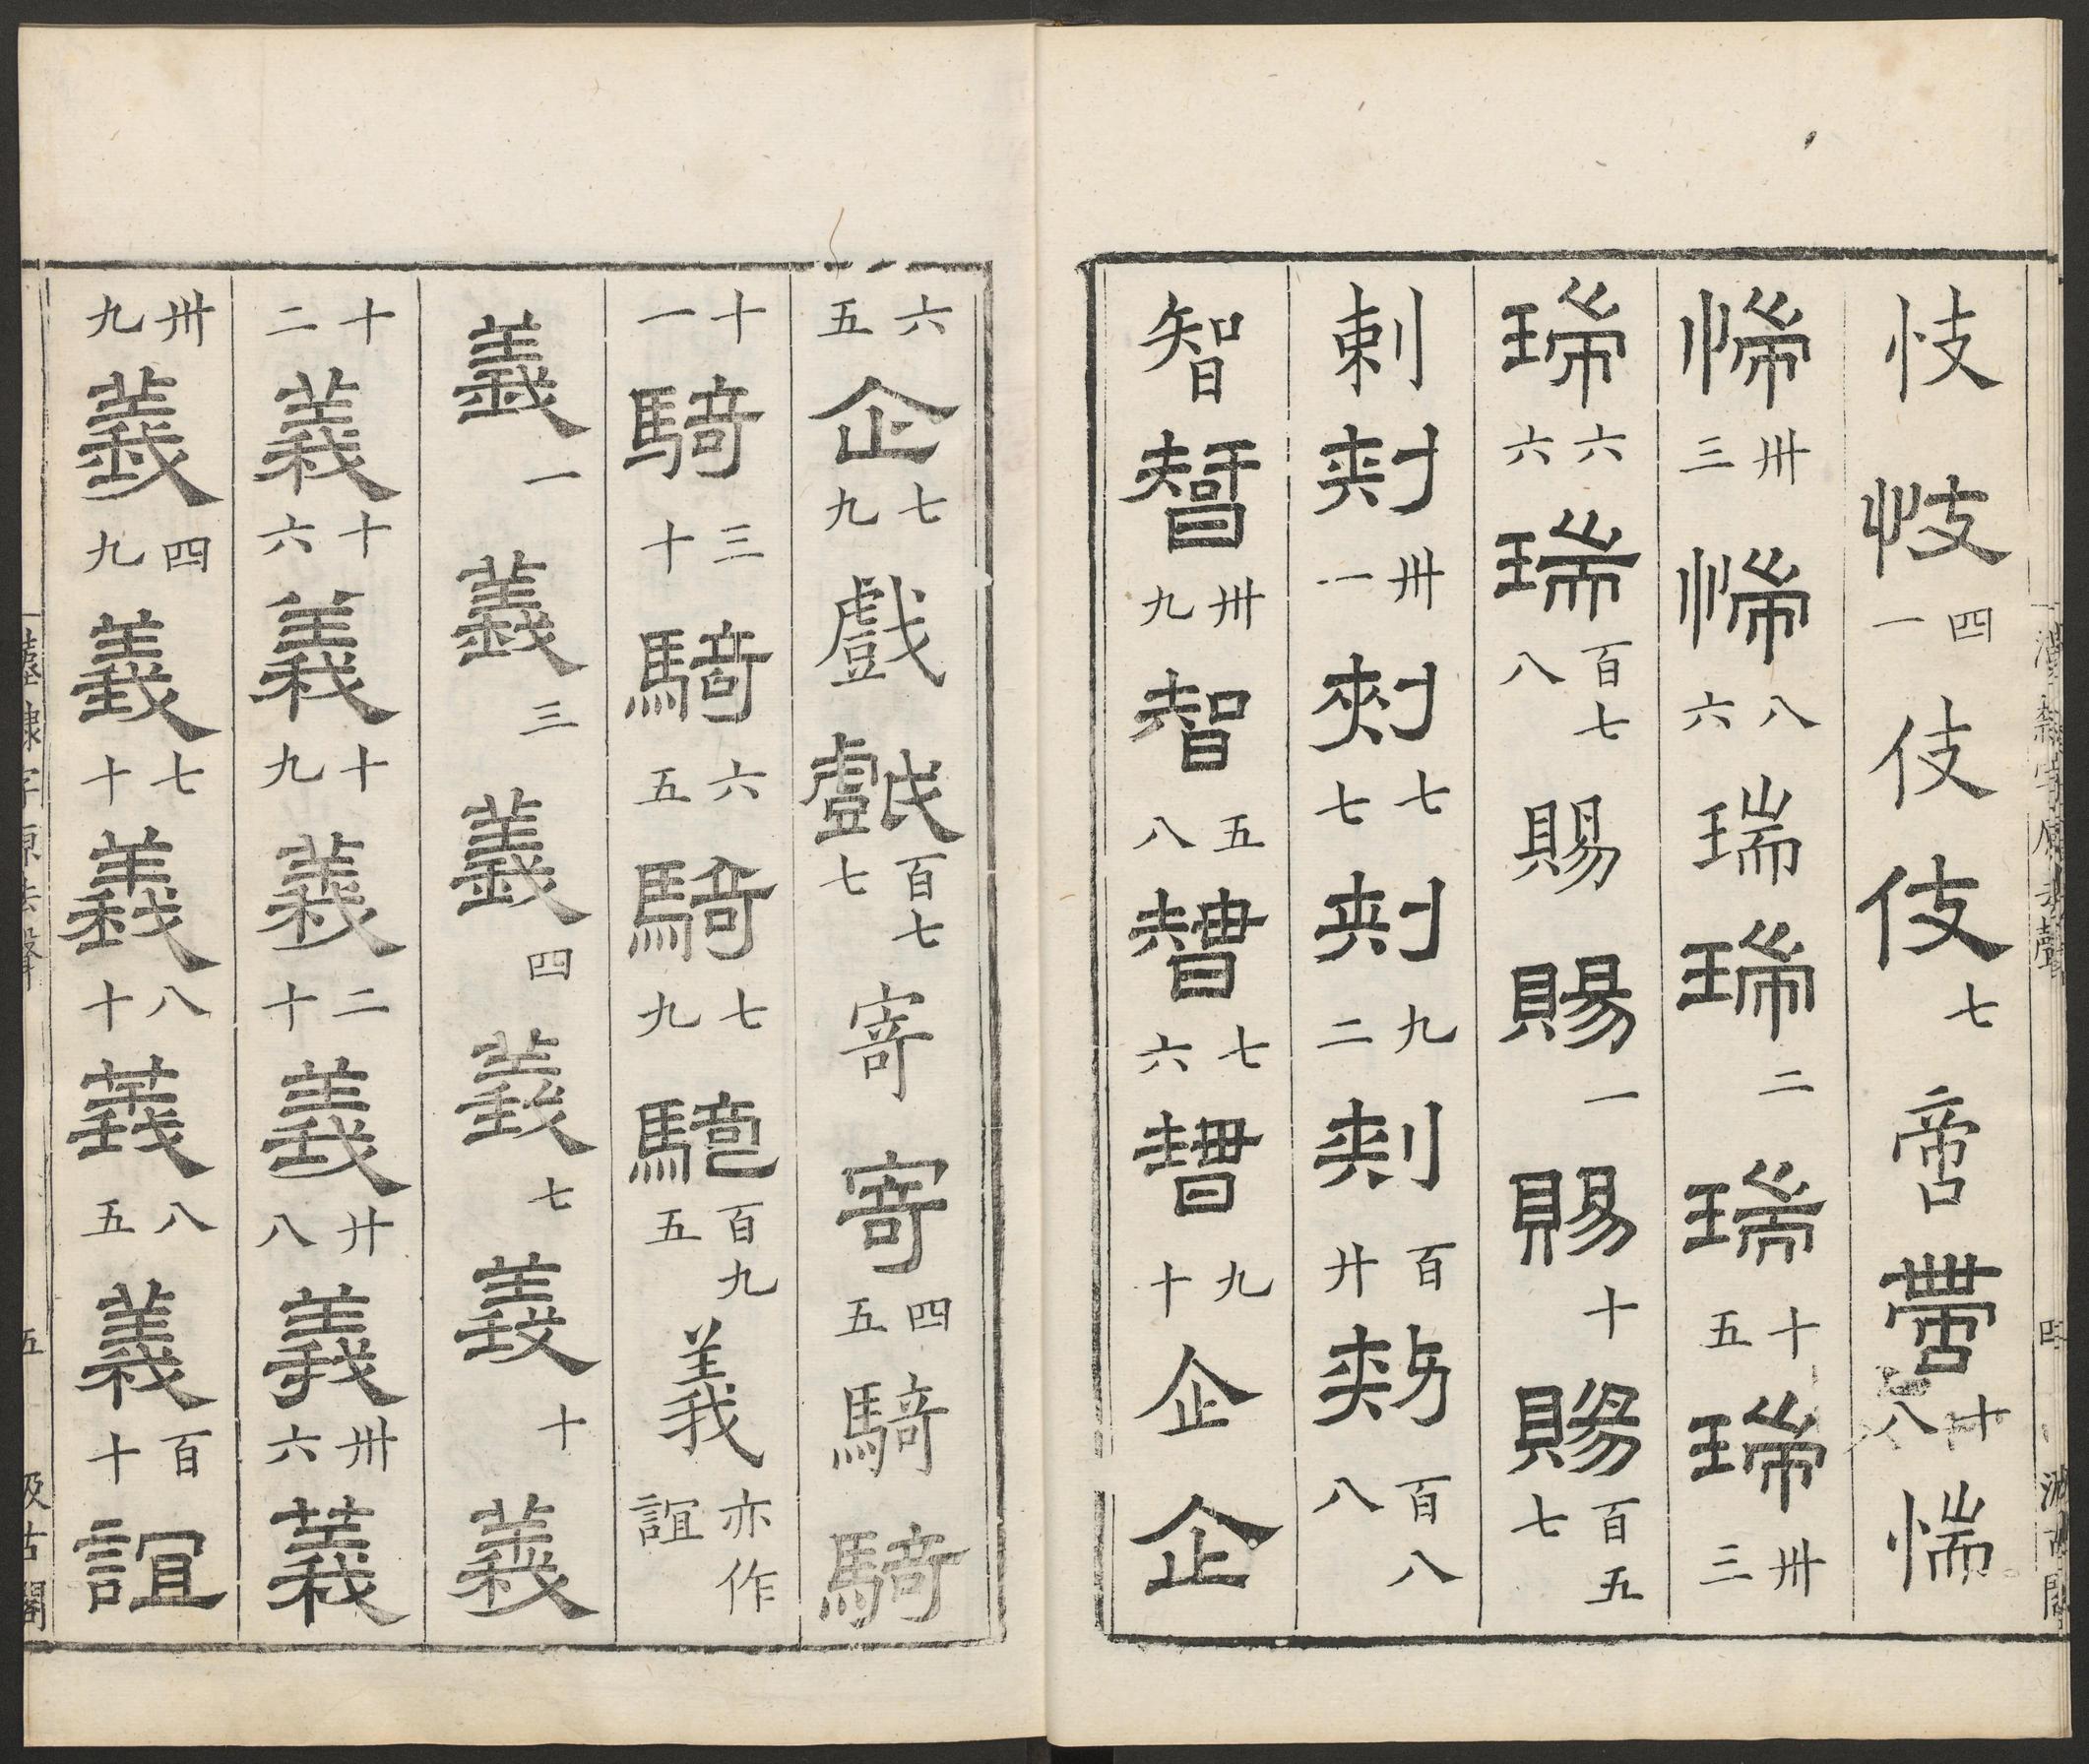 忮忮四一伎伎七啻啻十八惴
惴卅三惴八六瑞瑞二瑞十五瑞卅三
瑞六六瑞百七八賜賜一賜十賜百五七
刺刺卅一刺七七刺九二刺百廿刺百八八
智智卅九智五八智七六智九十企企
六五企七九戲戲百七七寄寄四五騎騎
十一騎三十騎六五騎七九騎百九五義亦作誼
義一義三義四義七義十義
十二義十六義十九義二十義廿八義卅六義
卅九義四九義七十義八十義八五義百十誼
漢隸字原去聲 四 汲古閣
漢隸字原去聲 五 汲古閣